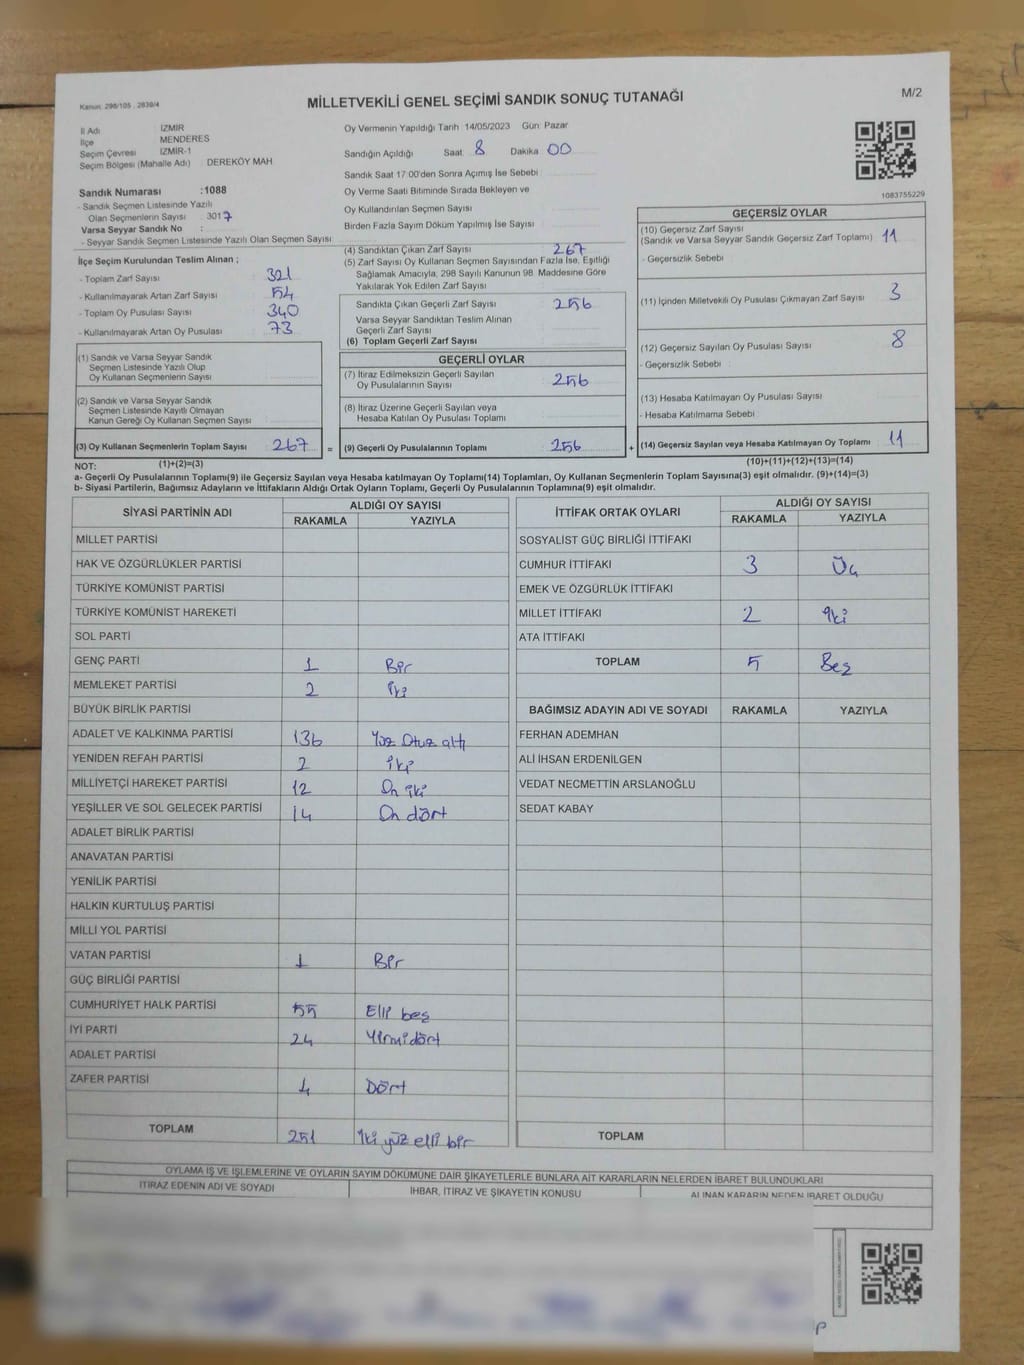 Kanun: 298/105 , 2839/4
MİLLETVEKİLİ GENEL SEÇİMİ SANDIK SONUÇ TUTANAĞI
M/2
İl Adı : İZMİR
İlçe : MENDERES
Seçim Çevresi : İZMİR-1
Seçim Bölgesi (Mahalle Adı) : DEREKÖY MAH
Sandık Numarası :1088
- Sandık Seçmen Listesinde Yazılı
Olan Seçmenlerin Sayısı : 3017
Varsa Seyyar Sandık No :
- Seyyar Sandık Seçmen Listesinde Yazılı Olan Seçmen Sayısı
Oy Vermenin Yapıldığı Tarih 14/05/2023 Gün: Pazar
Sandığın Açıldığı Saat 8 Dakika 00
Sandık Saat 17:00'den Sonra Açımış İse Sebebi
Oy Verme Saati Bitiminde Sırada Bekleyen ve
Oy Kullandırılan Seçmen Sayısı
Birden Fazla Sayım Döküm Yapılmış İse Sayısı
1083755229
İlçe Seçim Kurulundan Teslim Alınan ;
- Toplam Zarf Sayısı 321
- Kullanılmayarak Artan Zarf Sayısı 54
- Toplam Oy Pusulası Sayısı 340
- Kullanılmayarak Artan Oy Pusulası 73
(1) Sandık ve Varsa Seyyar Sandık
Seçmen Listesinde Yazılı Olup
Oy Kullanan Seçmenlerin Sayısı
(2) Sandık ve Varsa Seyyar Sandık
Seçmen Listesinde Kayıtlı Olmayan
Kanun Gereği Oy Kullanan Seçmen Sayısı
(3) Oy Kullanan Seçmenlerin Toplam Sayısı 267 =
(4) Sandıktan Çıkan Zarf Sayısı 267
(5) Zarf Sayısı Oy Kullanan Seçmen Sayısından Fazla İse, Eşitliği
Sağlamak Amacıyla, 298 Sayılı Kanunun 98. Maddesine Göre
Yakılarak Yok Edilen Zarf Sayısı
Sandıkta Çıkan Geçerli Zarf Sayısı 256
Varsa Seyyar Sandıktan Teslim Alınan
Geçerli Zarf Sayısı
(6) Toplam Geçerli Zarf Sayısı
GEÇERLİ OYLAR
(7) İtiraz Edilmeksizin Geçerli Sayılan
Oy Pusulalarının Sayısı 256
(8) İtiraz Üzerine Geçerli Sayılan veya
Hesaba Katılan Oy Pusulası Toplamı
(9) Geçerli Oy Pusulalarının Toplamı 256 +
GEÇERSİZ OYLAR
(10) Geçersiz Zarf Sayısı
(Sandık ve Varsa Seyyar Sandık Geçersiz Zarf Toplamı) 11
- Geçersizlik Sebebi
(11) İçinden Milletvekili Oy Pusulası Çıkmayan Zarf Sayısı 3
(12) Geçersiz Sayılan Oy Pusulası Sayısı 8
- Geçersizlik Sebebi
(13) Hesaba Katılmayan Oy Pusulası Sayısı
- Hesaba Katılmama Sebebi
(14) Geçersiz Sayılan veya Hesaba Katılmayan Oy Toplamı 11
NOT: (1)+(2)=(3) (10)+(11)+(12)+(13)=(14)
a- Geçerli Oy Pusulalarının Toplamı(9) ile Geçersiz Sayılan veya Hesaba katılmayan Oy Toplamı(14) Toplamları, Oy Kullanan Seçmenlerin Toplam Sayısına(3) eşit olmalıdır. (9)+(14)=(3)
b- Siyasi Partilerin, Bağımsız Adayların ve İttifakların Aldığı Ortak Oyların Toplamı, Geçerli Oy Pusulalarının Toplamına(9) eşit olmalıdır.
SİYASİ PARTİNİN ADI ALDIĞI OY SAYISI
RAKAMLA YAZIYLA
MİLLET PARTİSİ
HAK VE ÖZGÜRLÜKLER PARTİSİ
TÜRKİYE KOMÜNİST PARTİSİ
TÜRKİYE KOMÜNİST HAREKETİ
SOL PARTİ
GENÇ PARTİ 1 Bir
MEMLEKET PARTİSİ 2 iki
BÜYÜK BİRLİK PARTİSİ
ADALET VE KALKINMA PARTİSİ 136 Yüz Otuz altı
YENİDEN REFAH PARTİSİ 2 iki
MİLLİYETÇİ HAREKET PARTİSİ 12 On iki
YEŞİLLER VE SOL GELECEK PARTİSİ 14 On dört
ADALET BİRLİK PARTİSİ
ANAVATAN PARTİSİ
YENİLİK PARTİSİ
HALKIN KURTULUŞ PARTİSİ
MİLLİ YOL PARTİSİ
VATAN PARTİSİ 1 Bir
GÜÇ BİRLİĞİ PARTİSİ
CUMHURİYET HALK PARTİSİ 55 Elli beş
İYİ PARTİ 24 Yirmidört
ADALET PARTİSİ
ZAFER PARTİSİ 4 Dört
TOPLAM 251 iki yüz elli bir
İTTİFAK ORTAK OYLARI ALDIĞI OY SAYISI
RAKAMLA YAZIYLA
SOSYALİST GÜÇ BİRLİĞİ İTTİFAKI
CUMHUR İTTİFAKI 3 Üç
EMEK VE ÖZGÜRLÜK İTTİFAKI
MİLLET İTTİFAKI 2 iki
ATA İTTİFAKI
TOPLAM 5 Beş
BAĞIMSIZ ADAYIN ADI VE SOYADI RAKAMLA YAZIYLA
FERHAN ADEMHAN
ALİ İHSAN ERDENİLGEN
VEDAT NECMETTİN ARSLANOĞLU
SEDAT KABAY
TOPLAM
OYLAMA İŞ VE İŞLEMLERİNE VE OYLARIN SAYIM DÖKÜMÜNE DAİR ŞİKAYETLERLE BUNLARA AİT KARARLARIN NELERDEN İBARET BULUNDUKLARI
İTİRAZ EDENİN ADI VE SOYADI İHBAR, İTİRAZ VE ŞİKAYETİN KONUSU ALINAN KARARIN NEDEN İBARET OLDUĞU